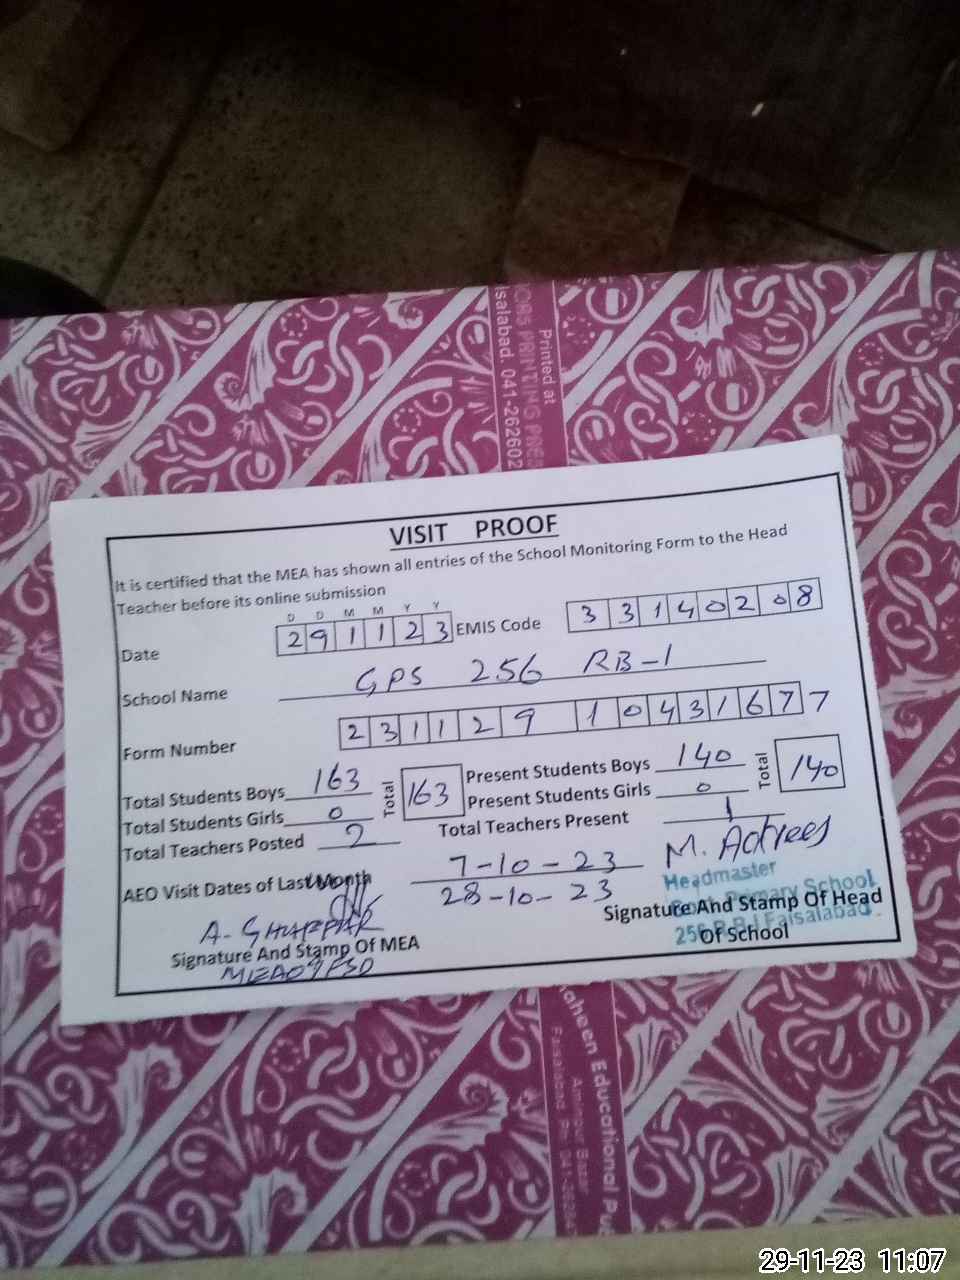 Printed at
ORS PRINTING PRES
isalabad. 041-262602
VISIT PROOF
It is certified that the MEA has shown all entries of the School Monitoring Form to the Head
Teacher before its online submission
D D M M Y Y
Date 2 9 1 1 2 3 EMIS Code 3 3 1 4 0 2 0 8
School Name GPS 256 RB-1
Form Number 2 3 1 1 2 9 1 0 4 3 1 6 7 7
Total Students Boys 163 Total 163 Present Students Boys 140 Total 140
Total Students Girls 0 Present Students Girls 0
Total Teachers Posted 2 Total Teachers Present 1
AEO Visit Dates of Last Month 7-10-23
28-10-23
M. Adrees
Headmaster
Govt. Primary School
256 R.B-I Faisalabad.
Signature And Stamp Of Head
Of School
A. GHAFFAR
Signature And Stamp Of MEA
MEA09FSD
aheen Educational Pu
Aminpur Bazar
Faisalabad Ph: 041-
29-11-23 11:07